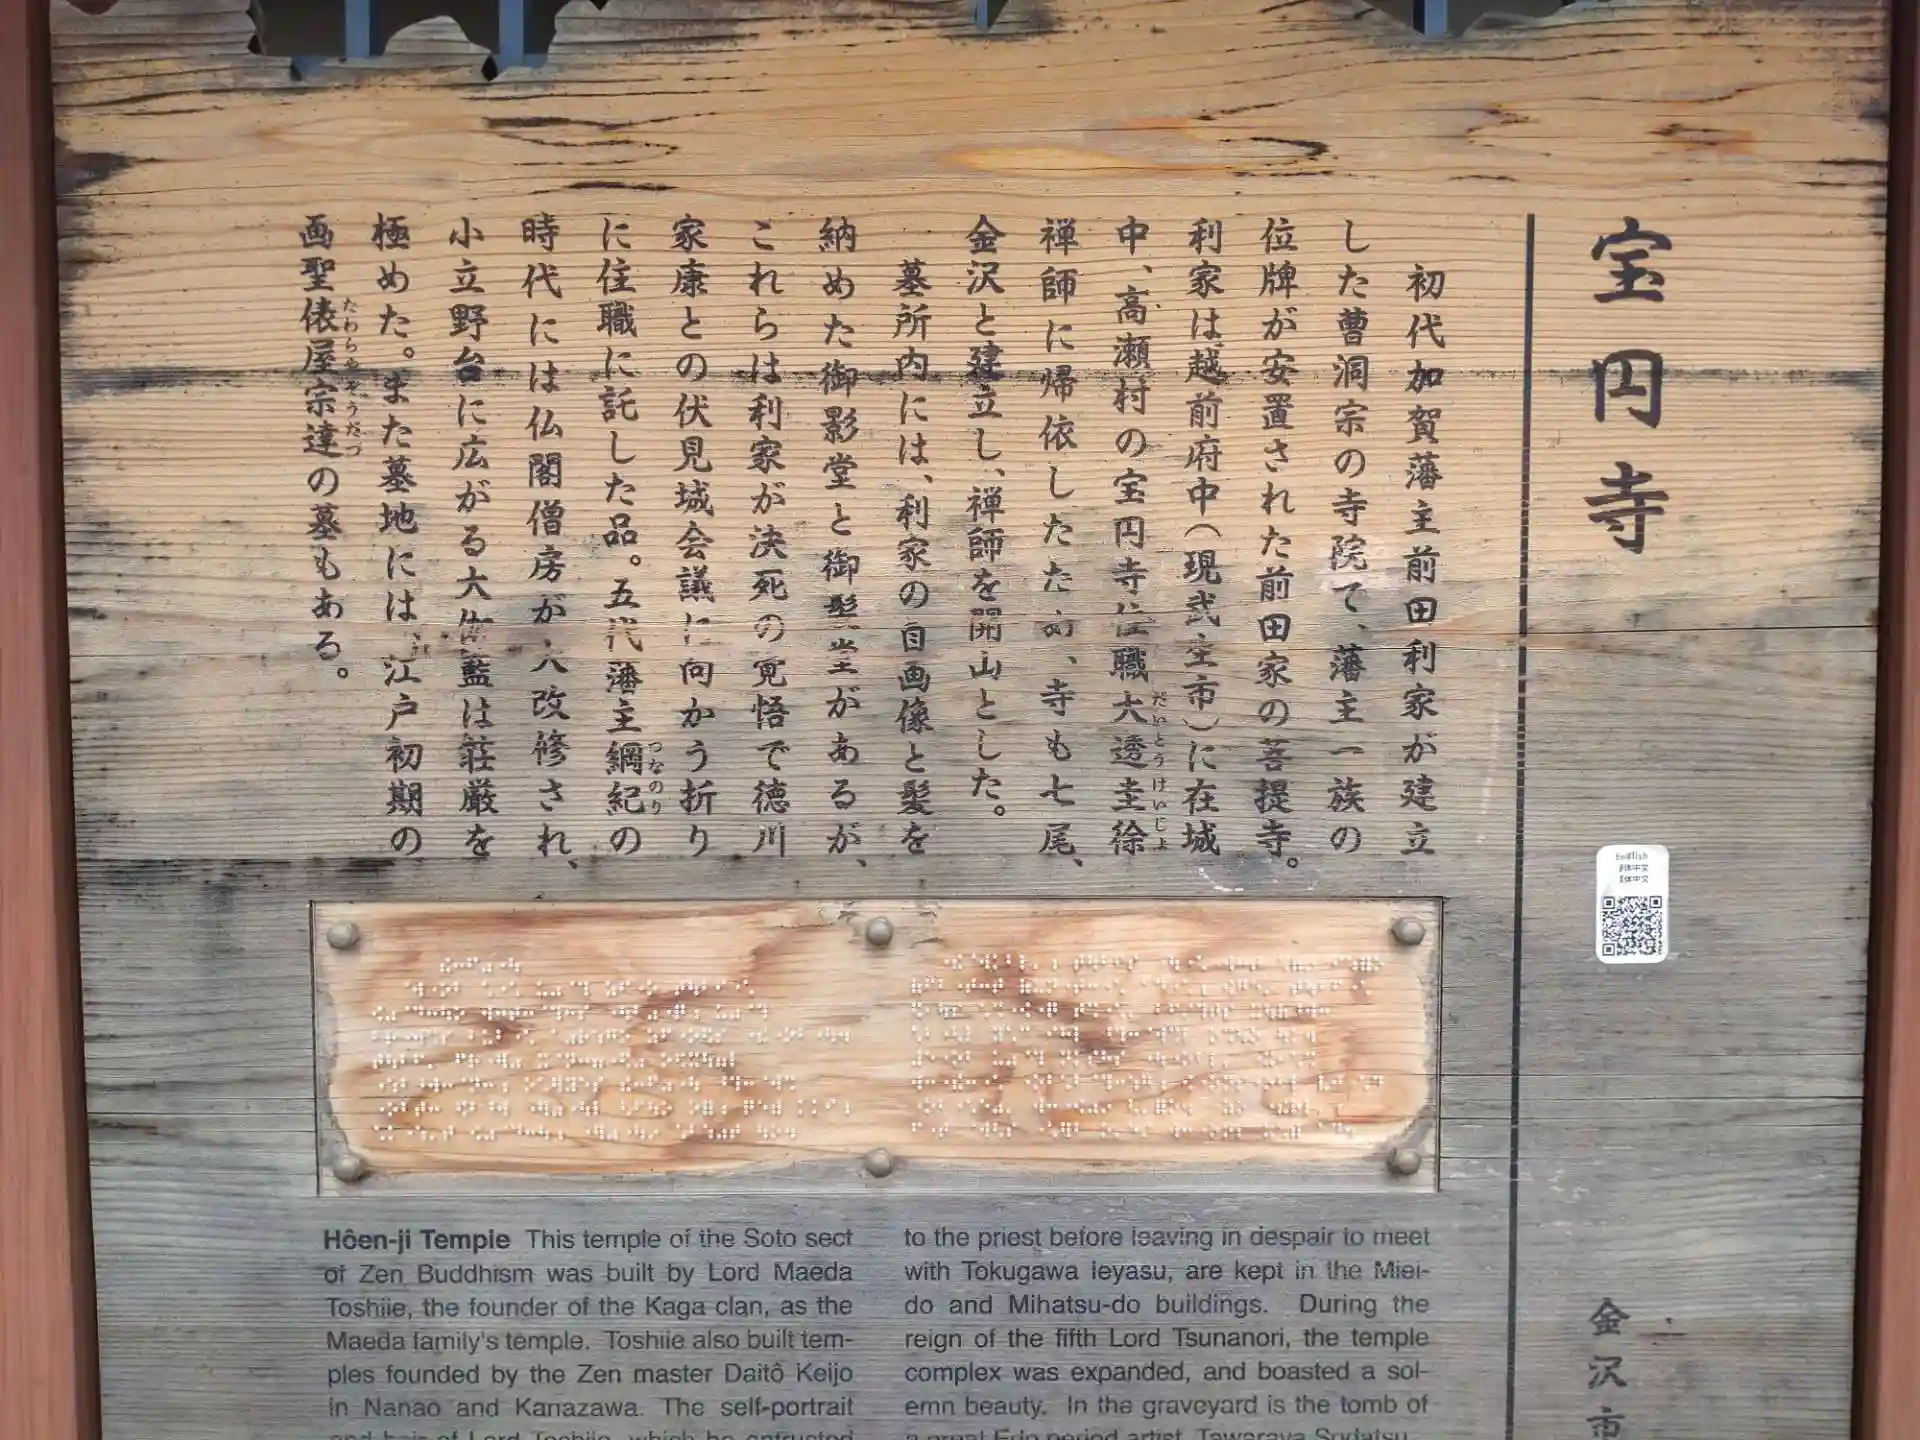 宝円寺
初代加賀藩主前田利家が建立
した曹洞宗の寺院で、藩主一族の
位牌が安置された前田家の菩提寺。
利家は越前府中(現武生市)に在城
中、高瀬村の宝円寺住職大透圭徐
だいとうけいじょ
禅師に帰依したため、寺も七尾、
金沢と建立し、禅師を開山とした。
墓所内には、利家の自画像と髪を
納めた御影堂と御髪堂があるが、
これらは利家が決死の覚悟で徳川
家康との伏見城会議に向かう折り
に住職に託した品。五代藩主綱紀の
つなのり
時代には仏閣僧房が大改修され、
小立野台に広がる大伽藍は荘厳を
極めた。また墓地には、江戸初期の
画聖俵屋宗達の墓もある。
たわらやそうたつ
金沢市
English
Hôen-ji Temple This temple of the Soto sect
of Zen Buddhism was built by Lord Maeda
Toshiie, the founder of the Kaga clan, as the
Maeda family's temple. Toshiie also built tem-
ples founded by the Zen master Daitô Keijo
in Nanao and Kanazawa. The self-portrait
and hair of Lord Toshiie, which he entrusted
to the priest before leaving in despair to meet
with Tokugawa Ieyasu, are kept in the Miei-
do and Mihatsu-do buildings. During the
reign of the fifth Lord Tsunanori, the temple
complex was expanded, and boasted a sol-
emn beauty. In the graveyard is the tomb of
a great Edo period artist, Tawaraya Sodatsu.